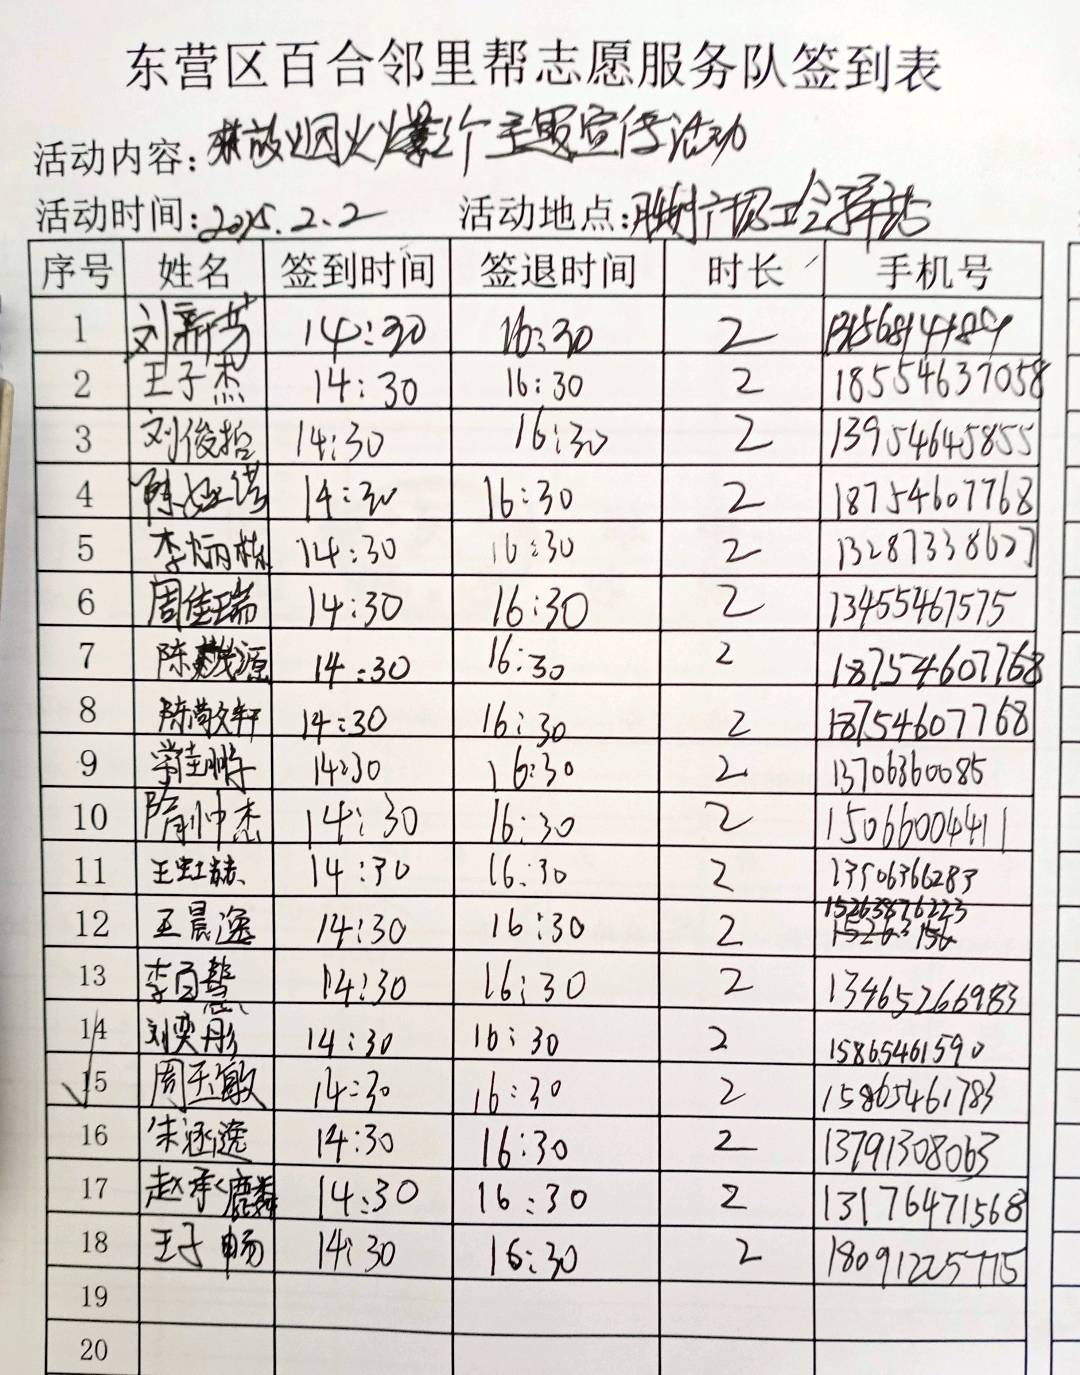 东营区百合邻里帮志愿服务队签到表
活动内容：禁放烟火爆竹主题宣传活动
活动时间：2025.2.2 活动地点：工会驿站
序号 姓名 签到时间 签退时间 时长 手机号
1 刘新芳 14:30 16:30 2
2 王子杰 14:30 16:30 2 18554637058
3 刘俊哲 14:30 16:30 2 13954645855
4 陈 14:30 16:30 2 18754607768
5 李炳栋 14:30 16:30 2 13287338627
6 周佳瑞 14:30 16:30 2 13455467575
7 陈 源 14:30 16:30 2 18754607768
8 陈敬轩 14:30 16:30 2 18754607768
9 常佳鹏 14:30 16:30 2 13706360085
10 隋帅杰 14:30 16:30 2 15066004411
11 王虹赫 14:30 16:30 2 13506366283
12 王晨逸 14:30 16:30 2 15263876223
13 李百慧 14:30 16:30 2 13465266983
14 刘奕彤 14:30 16:30 2 15865461590
15 周玉敏 14:30 16:30 2 15865461783
16 朱涵逸 14:30 16:30 2 13791308063
17 赵承麟 14:30 16:30 2 13176471568
18 王子畅 14:30 16:30 2 18091225775
19
20